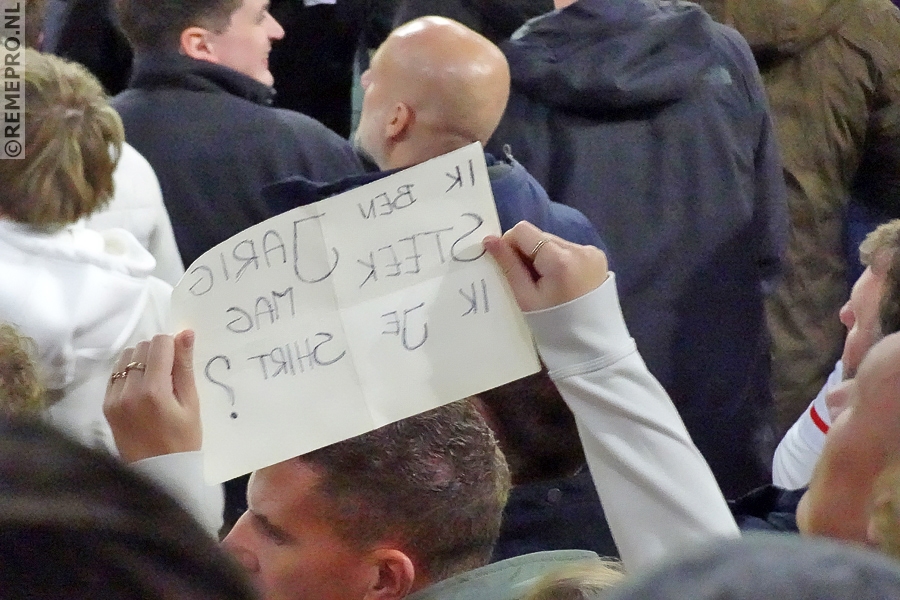 ©REMEPRO.NL
IK BEN JARIG
STEEK MAG
IK JE SHIRT?